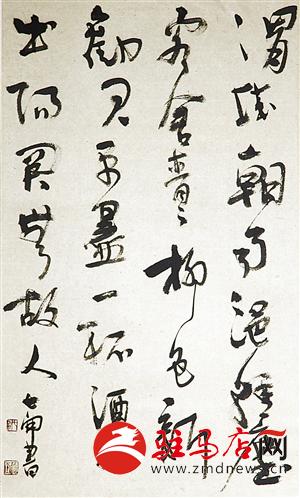 渭城朝雨浥輕塵
客舍青々柳色新
勸君更盡一杯酒
出陽關無故人
書
驻马店网
www.zmdnews.cn